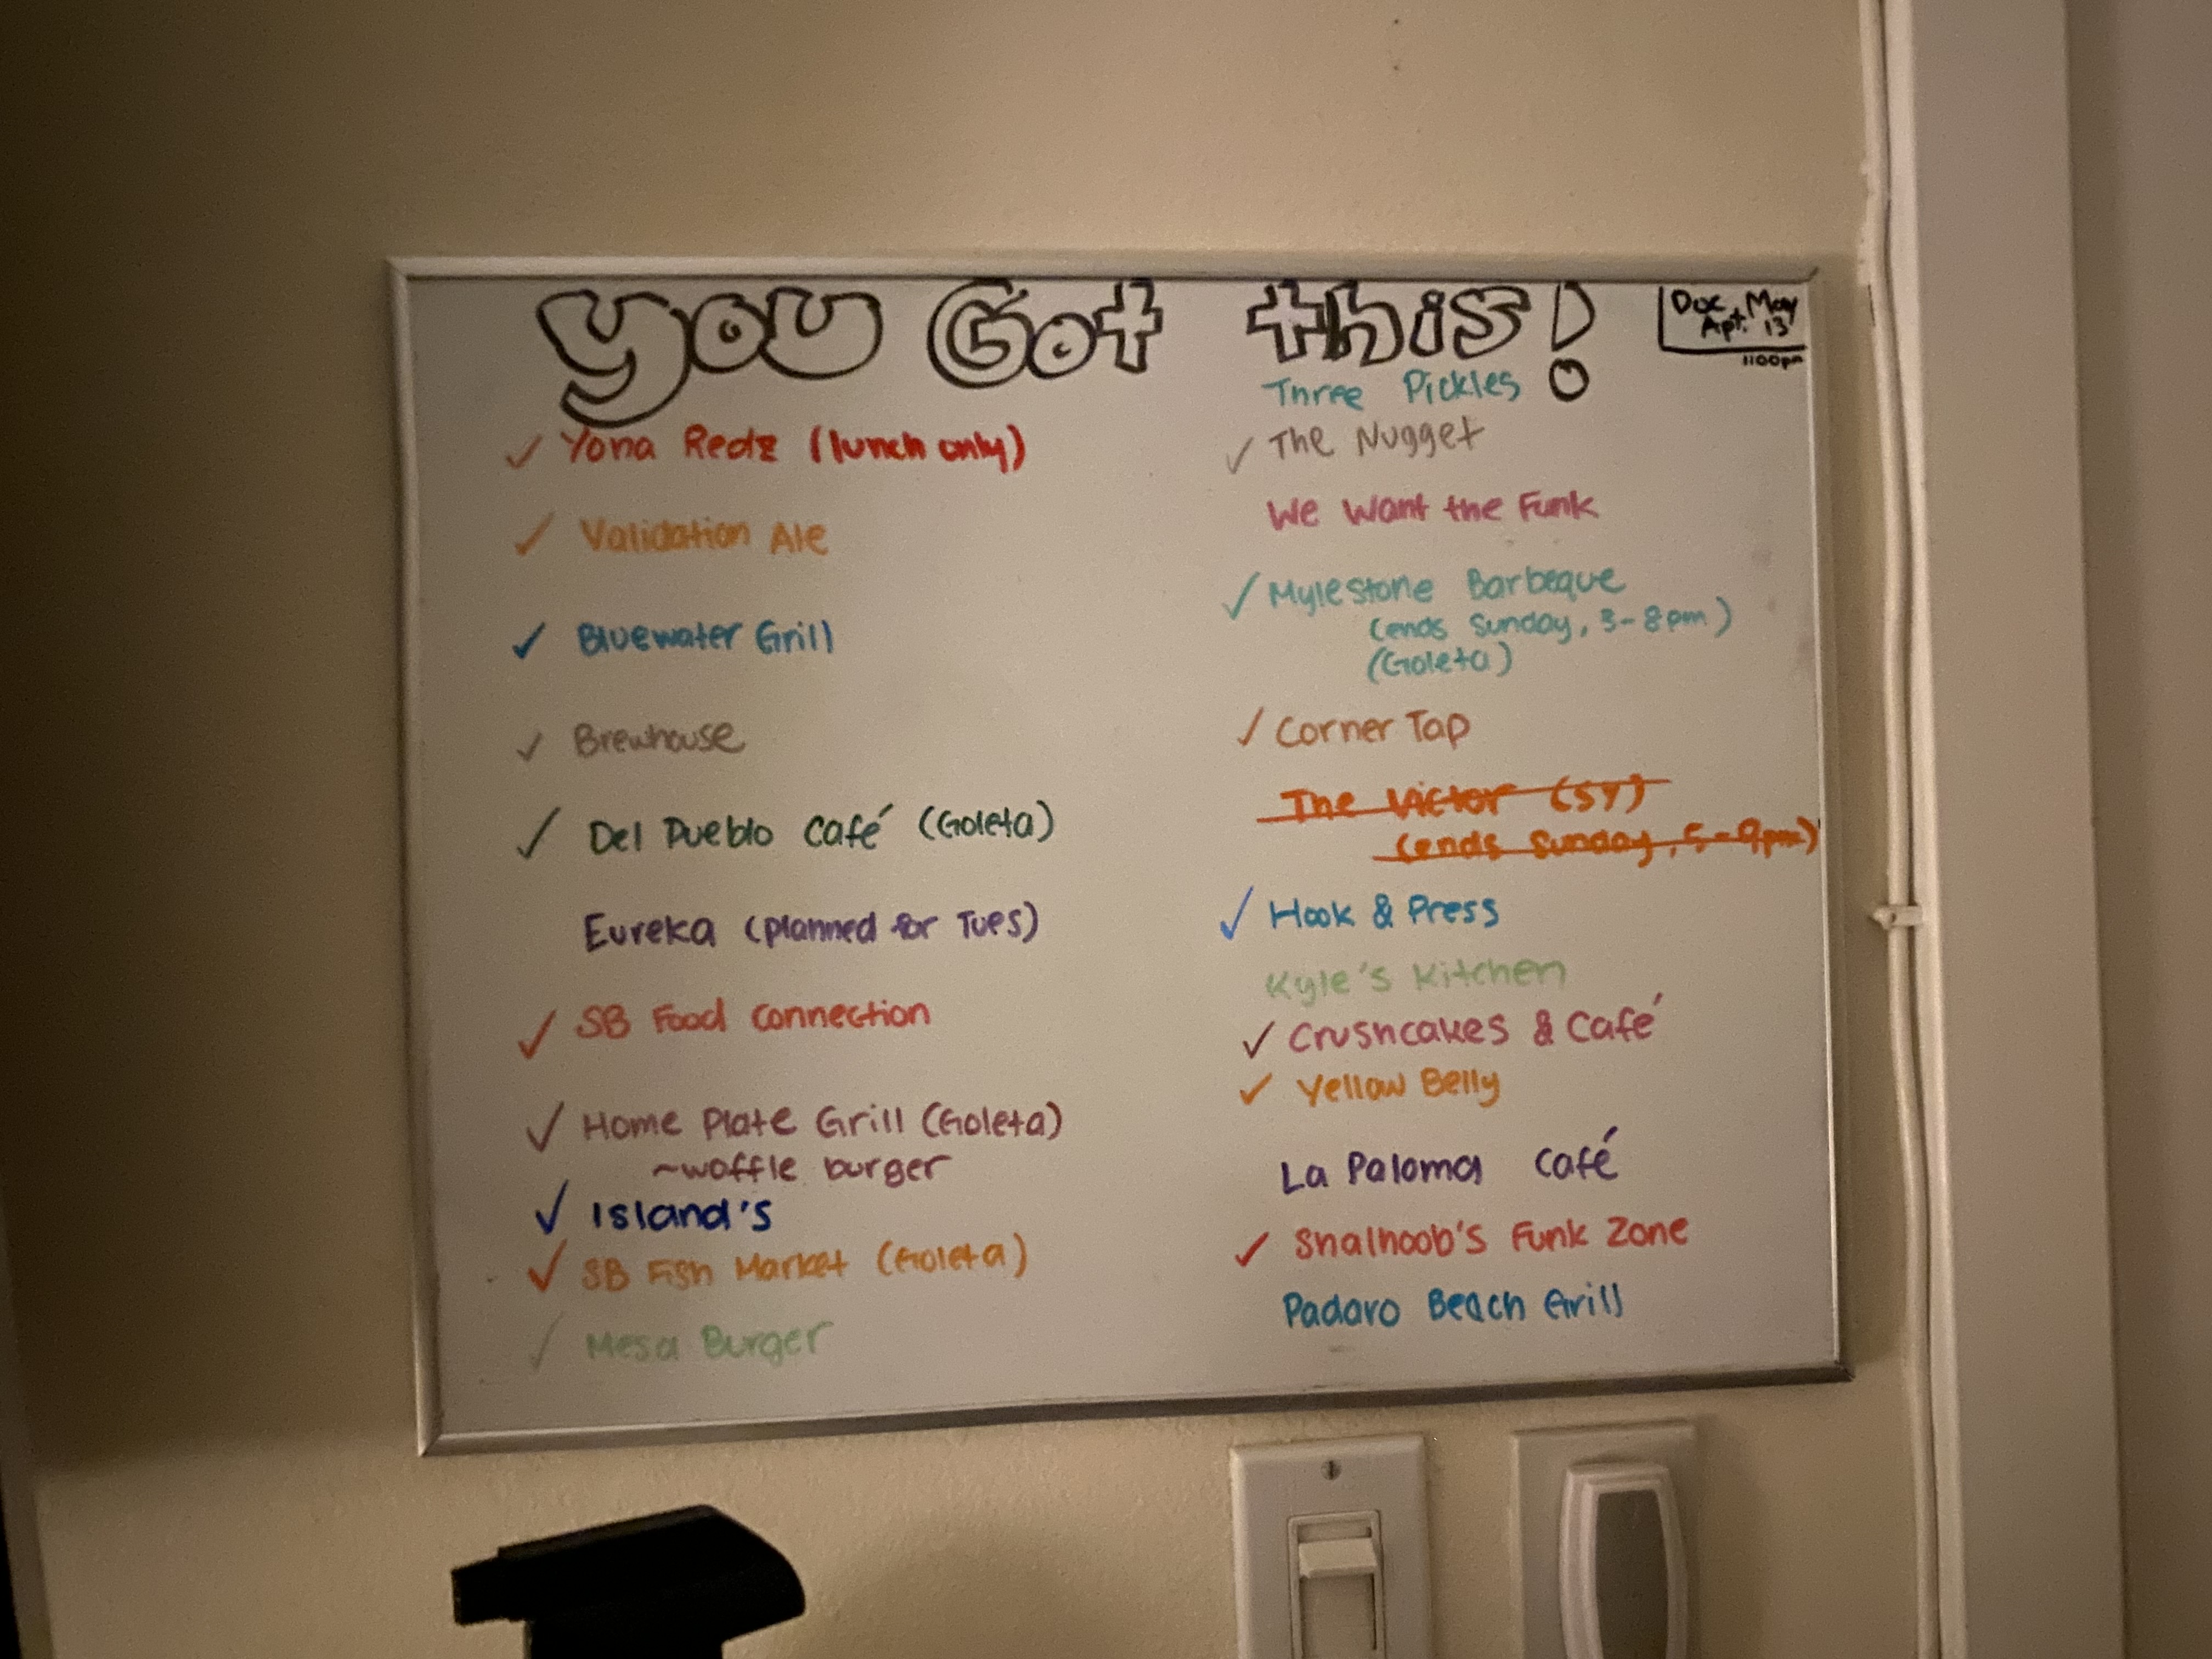 You Got this!
Doc May
Apt. 13
1100pm
✓ Yona Redz (lunch only)
✓ Validation Ale
✓ Bluewater Grill
✓ Brewhouse
✓ Del Pueblo Café (Goleta)
Eureka (planned for Tues)
✓ SB Food Connection
✓ Home Plate Grill (Goleta)
~waffle burger
✓ Island's
✓ SB Fish Market (Goleta)
✓ Mesa Burger
Three Pickles
✓ The Nugget
We Want the Funk
✓ Mylestone Barbeque
(ends Sunday, 3-8pm)
(Goleta)
✓ Corner Tap
The Victor (SY)
(ends Sunday, 5-9pm)
✓ Hook & Press
Kyle's Kitchen
✓ Crushcakes & Café
✓ Yellow Belly
La Paloma Café
✓ Shalhoob's Funk Zone
Padaro Beach Grill